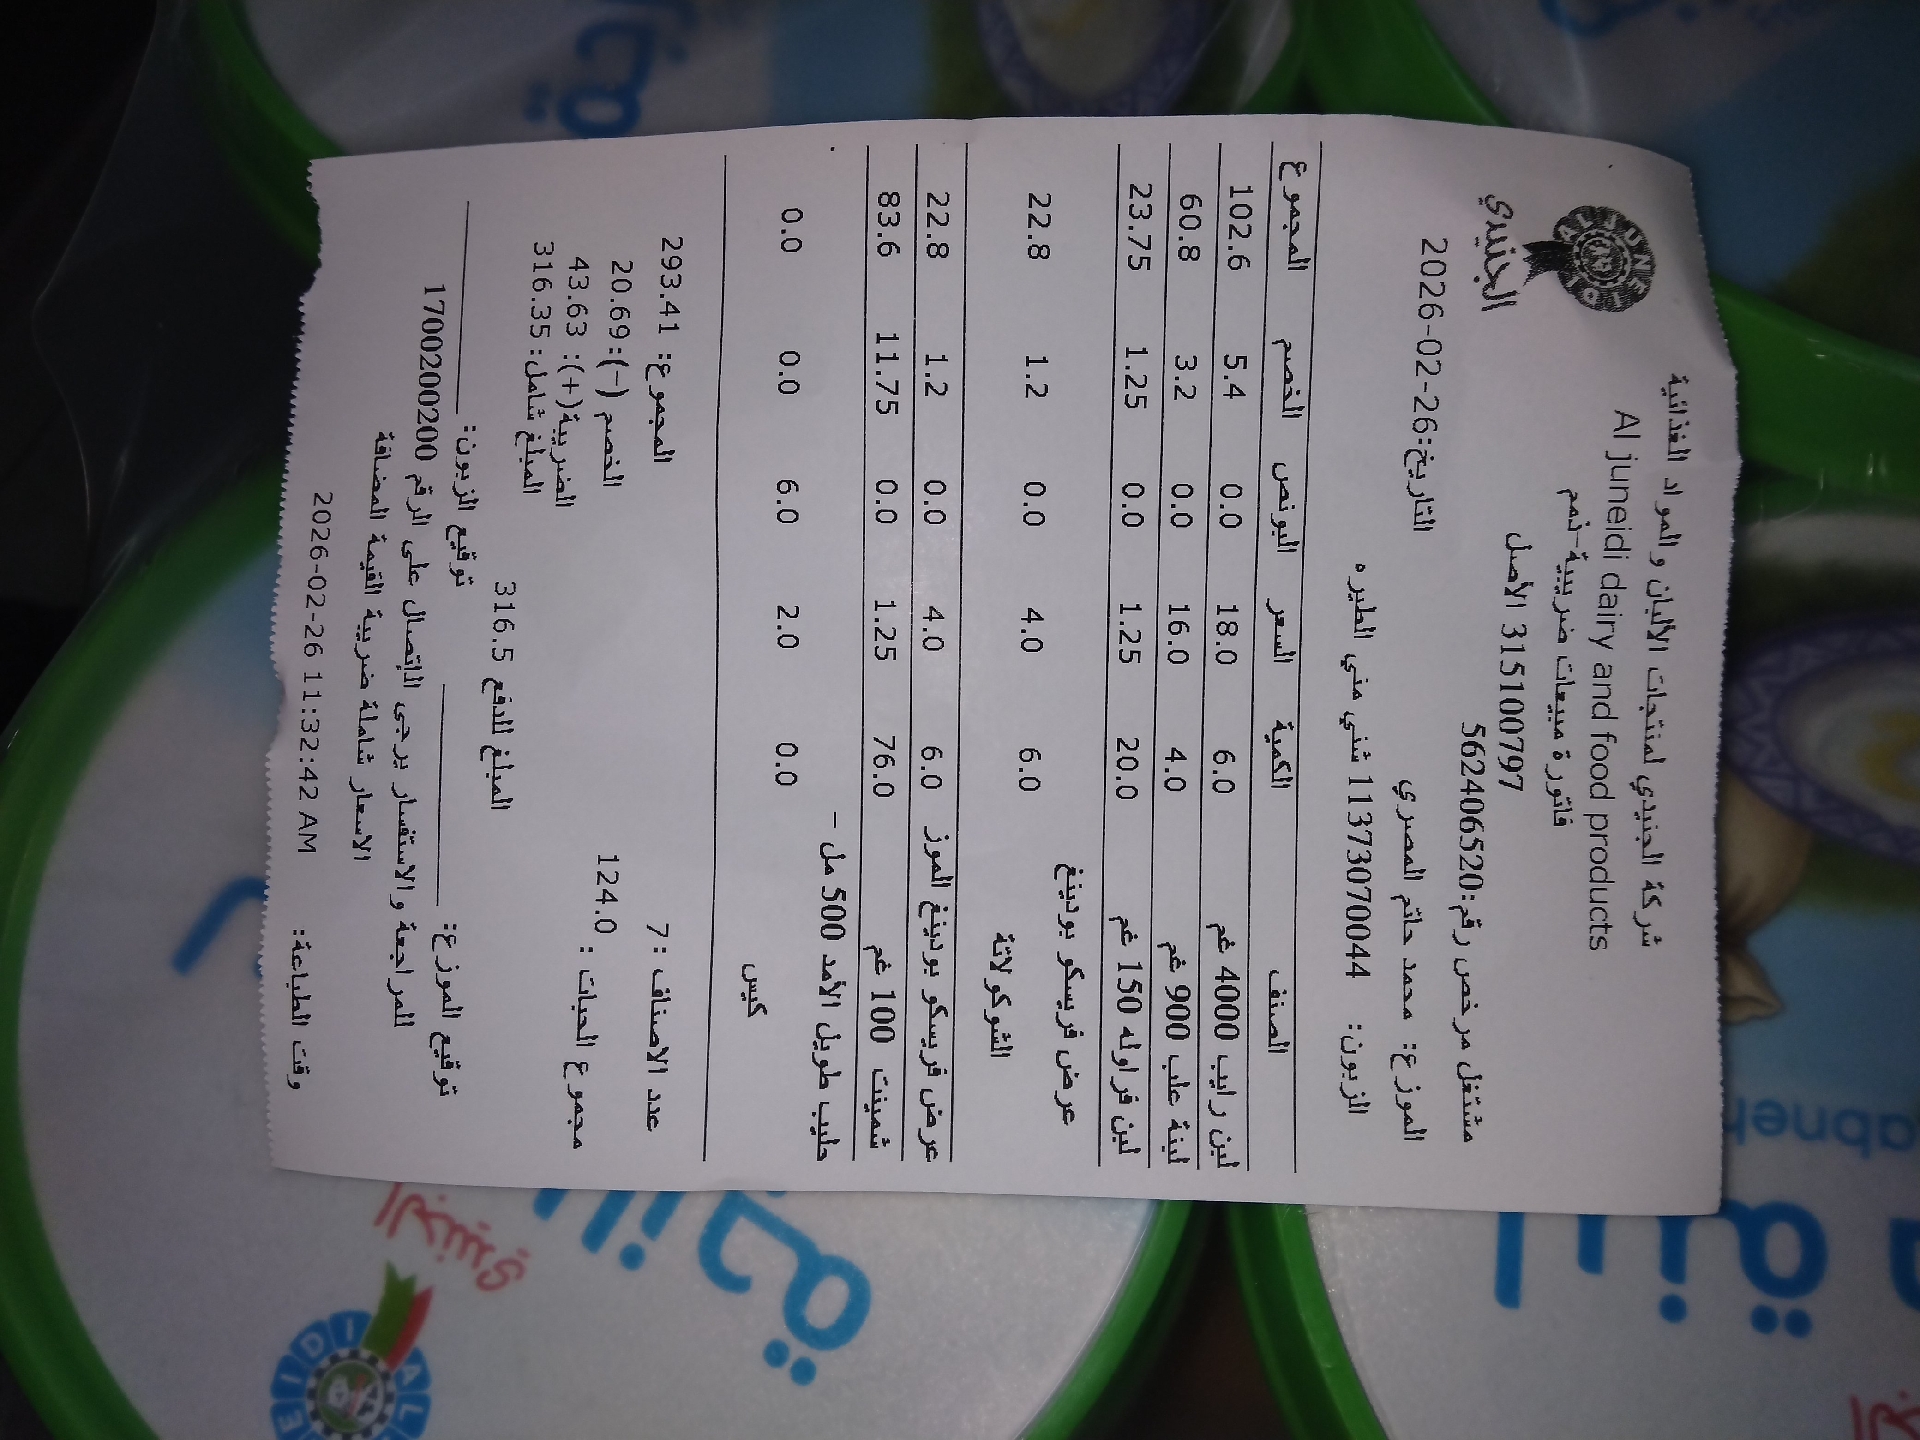 شركة الجنيدي لمنتجات الألبان والمواد الغذائية
Al juneidi dairy and food products
فاتورة مبيعات ضريبية-ذمم
315100797 الأصل
AL JUNEIDI
الجنيدي
مشتغل مرخص رقم:562406520
التاريخ:2026-02-26
الموزع: محمد حاتم المصري
الزبون: 11373070044 شني مني الطيره
الصنف الكمية السعر البونص الخصم المجموع
لبن رايب 4000 غم 6.0 18.0 0.0 5.4 102.6
لبنة علب 900 غم 4.0 16.0 0.0 3.2 60.8
لبن فراوله 150 غم 20.0 1.25 0.0 1.25 23.75
عرض فريسكو بودينغ
6.0 4.0 0.0 1.2 22.8
الشوكولاتة
عرض فريسكو بودينغ الموز 6.0 4.0 0.0 1.2 22.8
شمينت 100 غم 76.0 1.25 0.0 11.75 83.6
حليب طويل الأمد 500 مل -
0.0 2.0 6.0 0.0 0.0
كيس
عدد الاصناف : 7
المجموع: 293.41
مجموع الحبات : 124.0
الخصم (-):20.69
الضريبة(+): 43.63
المبلغ شامل: 316.35
المبلغ للدفع 316.5
توقيع الموزع: __________ توقيع الزبون: __________
للمراجعة والاستفسار يرجى الإتصال على الرقم 1700200200
الاسعار شاملة ضريبة القيمة المضافة
وقت الطباعة: 2026-02-26 11:32:42 AM
لبنة
abneh
لبنة
EIDI AL